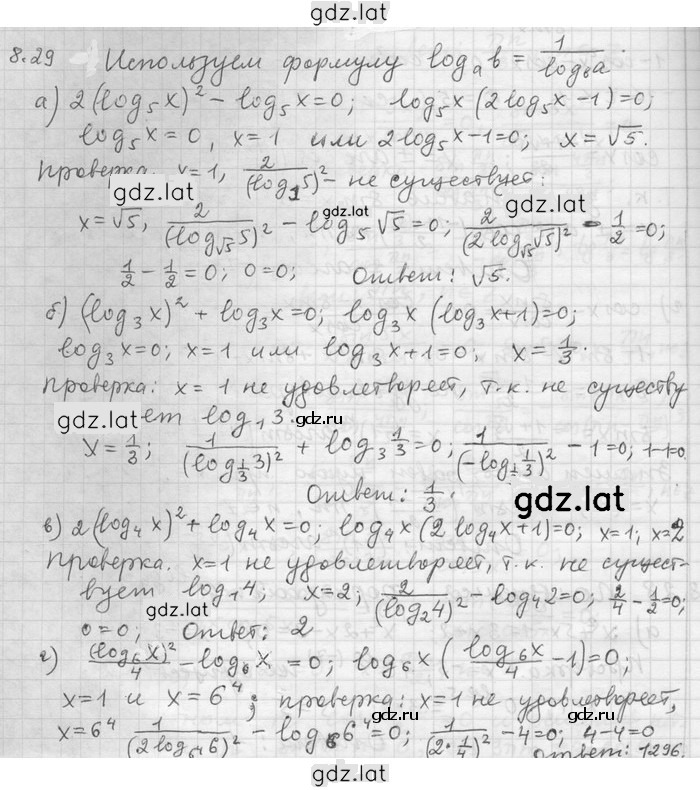 gdz.lat
8.29 Используем формулу log_a b = 1/log_b a.
а) 2(log_5 x)^2 − log_5 x = 0; log_5 x (2log_5 x − 1) = 0;
log_5 x = 0, x = 1 или 2log_5 x − 1 = 0; x = √5.
Проверка. x = 1, 2/(log_1 5)^2 − не существует:
gdz.lat
gdz.lat
x = √5, 2/(log_√5 5)^2 − log_5 √5 = 0; 2/(2 log_√5 √5)^2 − 1/2 = 0;
gdz.lat
1/2 − 1/2 = 0; 0 = 0; Ответ: √5.
б) (log_3 x)^2 + log_3 x = 0; log_3 x (log_3 x + 1) = 0;
log_3 x = 0; x = 1 или log_3 x + 1 = 0; x = 1/3.
Проверка: x = 1 не удовлетворяет, т.к. не существу
ет log_1 3.
gdz.lat
gdz.ru
x = 1/3; 1/(log_1/3 3)^2 + log_3 1/3 = 0; 1/(−log_1/3 1/3)^2 − 1 = 0; 1−1=0.
gdz.ru
Ответ: 1/3.
gdz.lat
в) 2(log_4 x)^2 + log_4 x = 0; log_4 x (2 log_4 x + 1) = 0; x = 1; x = 2
Проверка. x = 1 не удовлетворяет, т.к. не сущест-
вует log_1 4; x = 2; 2/(log_2 4)^2 − log_4 2 = 0; 2/4 − 1/2 = 0;
gdz.lat
0 = 0; Ответ: 2
г) (log_6 x)^2/4 − log_6 x = 0; log_6 x (log_6 x/4 − 1) = 0;
gdz.lat
x = 1 и x = 6^4; проверка: x = 1 не удовлетворяет,
gdz.ru
x = 6^4 1/(2 log_6^4 6)^2 − log_6 6^4 = 0; 1/(2·1/4)^2 − 4 = 0; 4−4=0
gdz.ru
Ответ: 1296.
gdz.lat